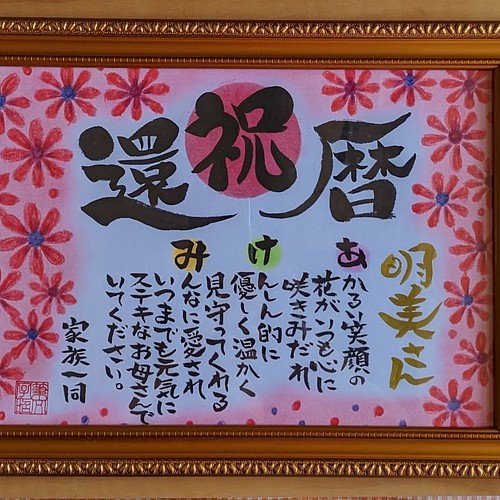 還祝暦
明美さん
あかるい笑顔の
花がいつも心に
咲きみだれ
けんしん的に
優しく温かく
見守ってくれる
みんなに愛され
いつまでも元気に
ステキなお母さんで
いてください。
家族一同